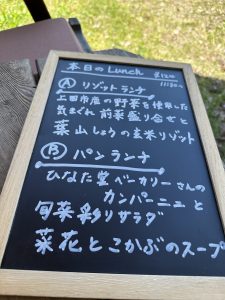 本日のLunch
Ⓐ リゾットランチ
上田市産の野菜を使った
気まぐれ前菜盛り合せと
葉山しょうの玄米リゾット
Ⓑ パンランチ
ひなた堂ベーカリーさんの
カンパーニュと
旬菜彩りサラダ
菜花とこかぶのスープ